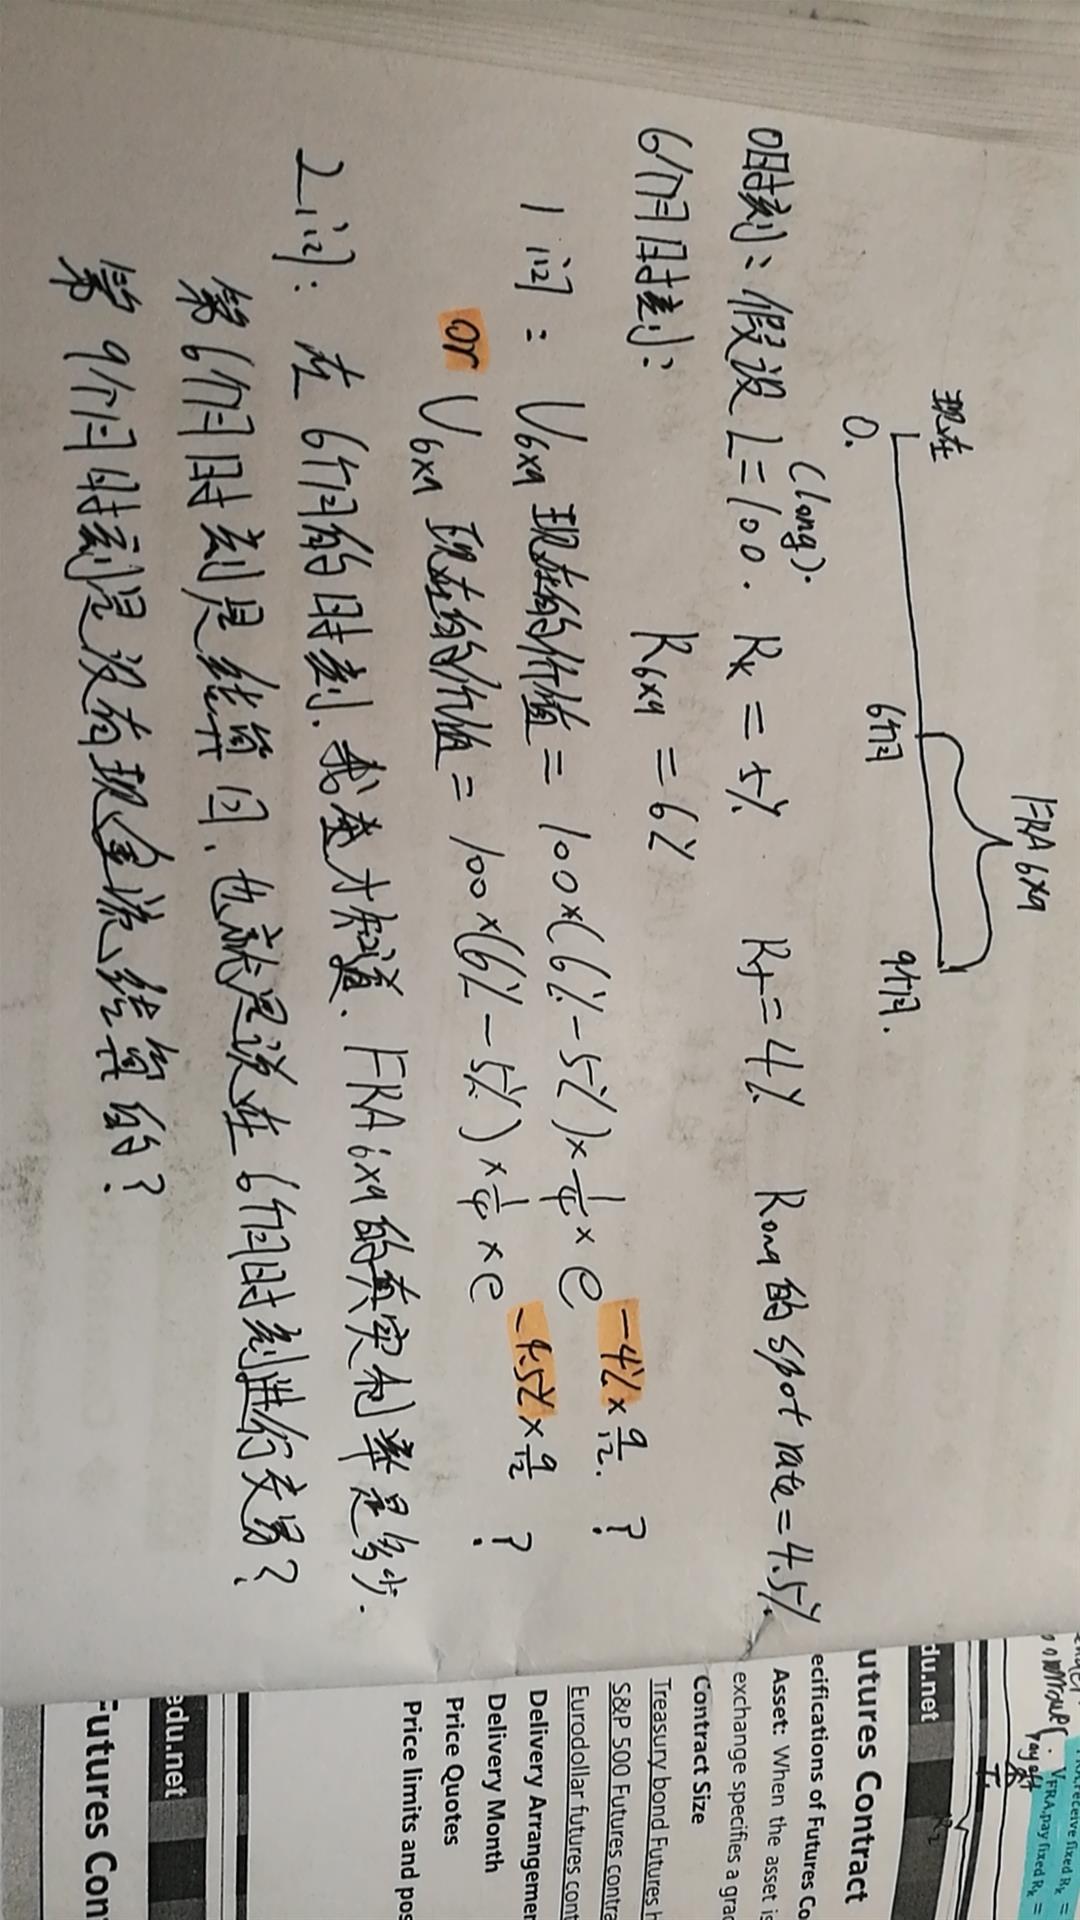 FRA 6x9
现在
0.
6个月
9个月.
(long).
0时刻: 假设 L=100. Rk = 5% Rf=4% R0m9的spot rate=4.5%
6个月时刻: R6x9 = 6%
1问: V6x9 现在的价值 = 100×(6%-5%)×1/4×e -4%×9/12. ?
or V6x9 现在的价值 = 100×(6%-5%)×1/4×e -4.5%×9/12 ?
2问: 在6个月的时刻. 我查才知道. FRA 6x9的真实利率是多少.
第6个月时刻是结算日、也就是说在6个月时刻进行交易?
第9个月时刻是没有现金流、结算的?
receive fixed Rk =
VFRA,pay fixed Rk =
payoff
T1
du.net
utures Contract
ecifications of Futures Co
Asset: When the asset is
exchange specifies a grad
Contract Size
Treasury bond Futures h
S&P 500 Futures contra
Eurodollar futures cont
Delivery Arrangemen
Delivery Month
Price Quotes
Price limits and pos
edu.net
Futures Con